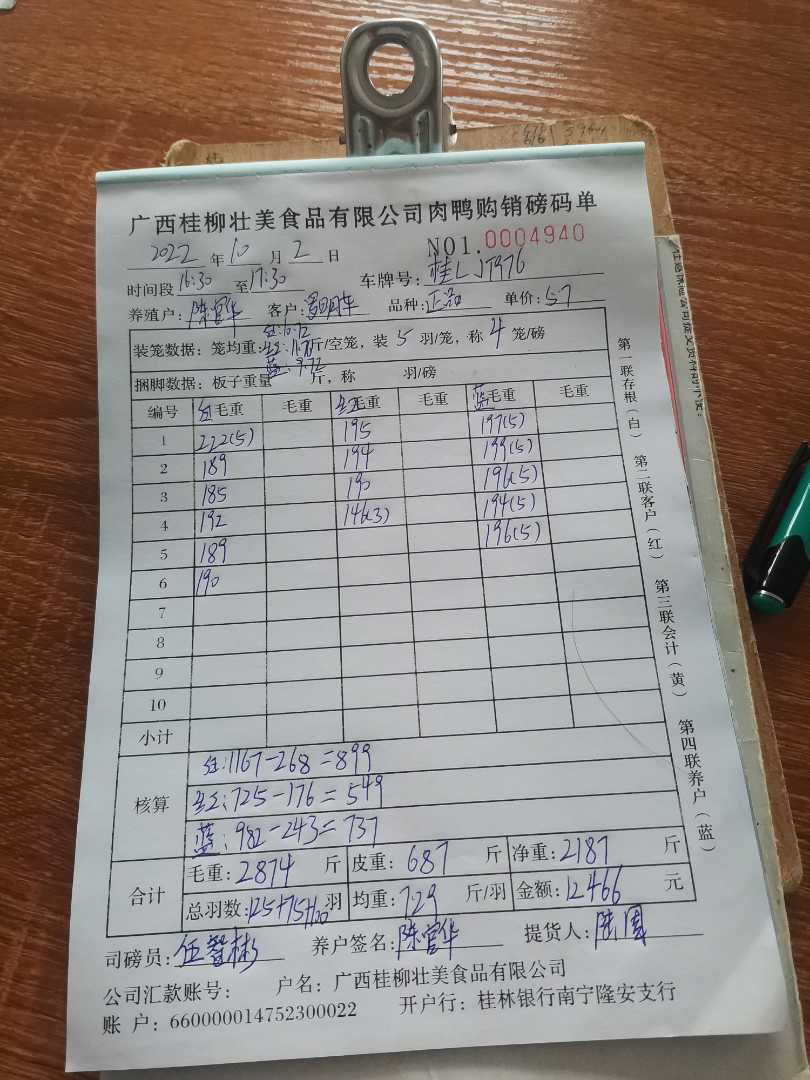 广西桂柳壮美食品有限公司肉鸭购销磅码单
2022 年 10 月 2 日 NO1. 0004940
时间段 16:30 至 17:30 车牌号: 桂L J7976
养殖户: 陈官华 客户: 品种: 单价: 5.7
装笼数据: 笼均重: 红:10.72 11.78 蓝:9.72 斤/空笼, 装 5 羽/笼, 称 4 笼/磅
捆脚数据: 板子重量 斤, 称 羽/磅
编号 红毛重 毛重 毛重 毛重 蓝毛重 毛重
1 222(5) 195 197(5)
2 189 194 199(5)
3 185 190 196(5)
4 192 146(3) 194(5)
5 189 196(5)
6 190
7
8
9
10
小计
核算 红:1167-268=899
725-176=549
蓝:982-243=737
合计 毛重: 2874 斤 皮重: 687 斤 净重: 2187 斤
总羽数: 125+75+100 羽 均重: 7.29 斤/羽 金额: 12466 元
司磅员: 伍智彬 养户签名: 陈官华 提货人:
公司汇款账号: 户名: 广西桂柳壮美食品有限公司
账 户: 660000014752300022 开户行: 桂林银行南宁隆安支行
第一联存根(白) 第二联客户(红) 第三联会计(黄) 第四联养户(蓝)